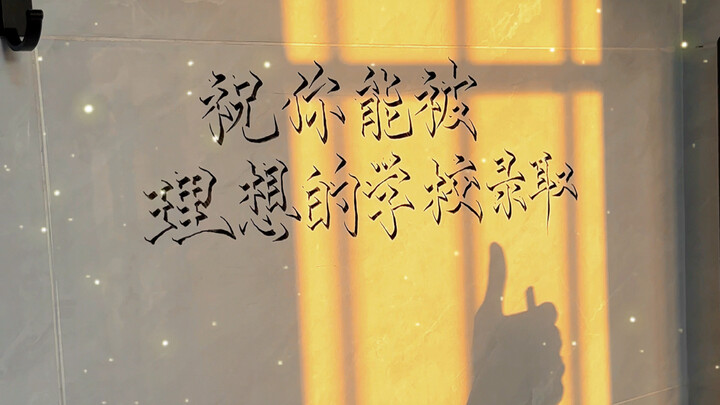 祝你能被
理想的学校录取